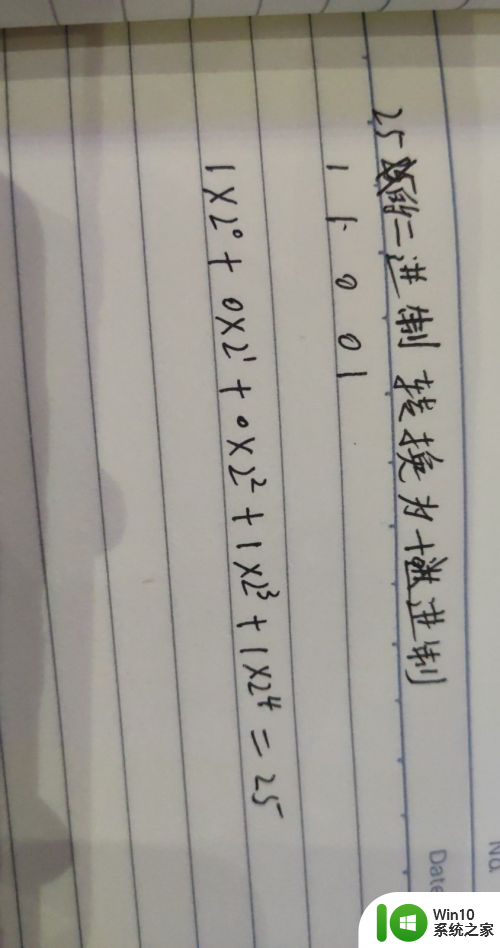 25的二进制 转换为十进制
1 1 0 0 1
1×2⁰+0×2¹+0×2²+1×2³+1×2⁴=25
Date
No
Win10
系统之家